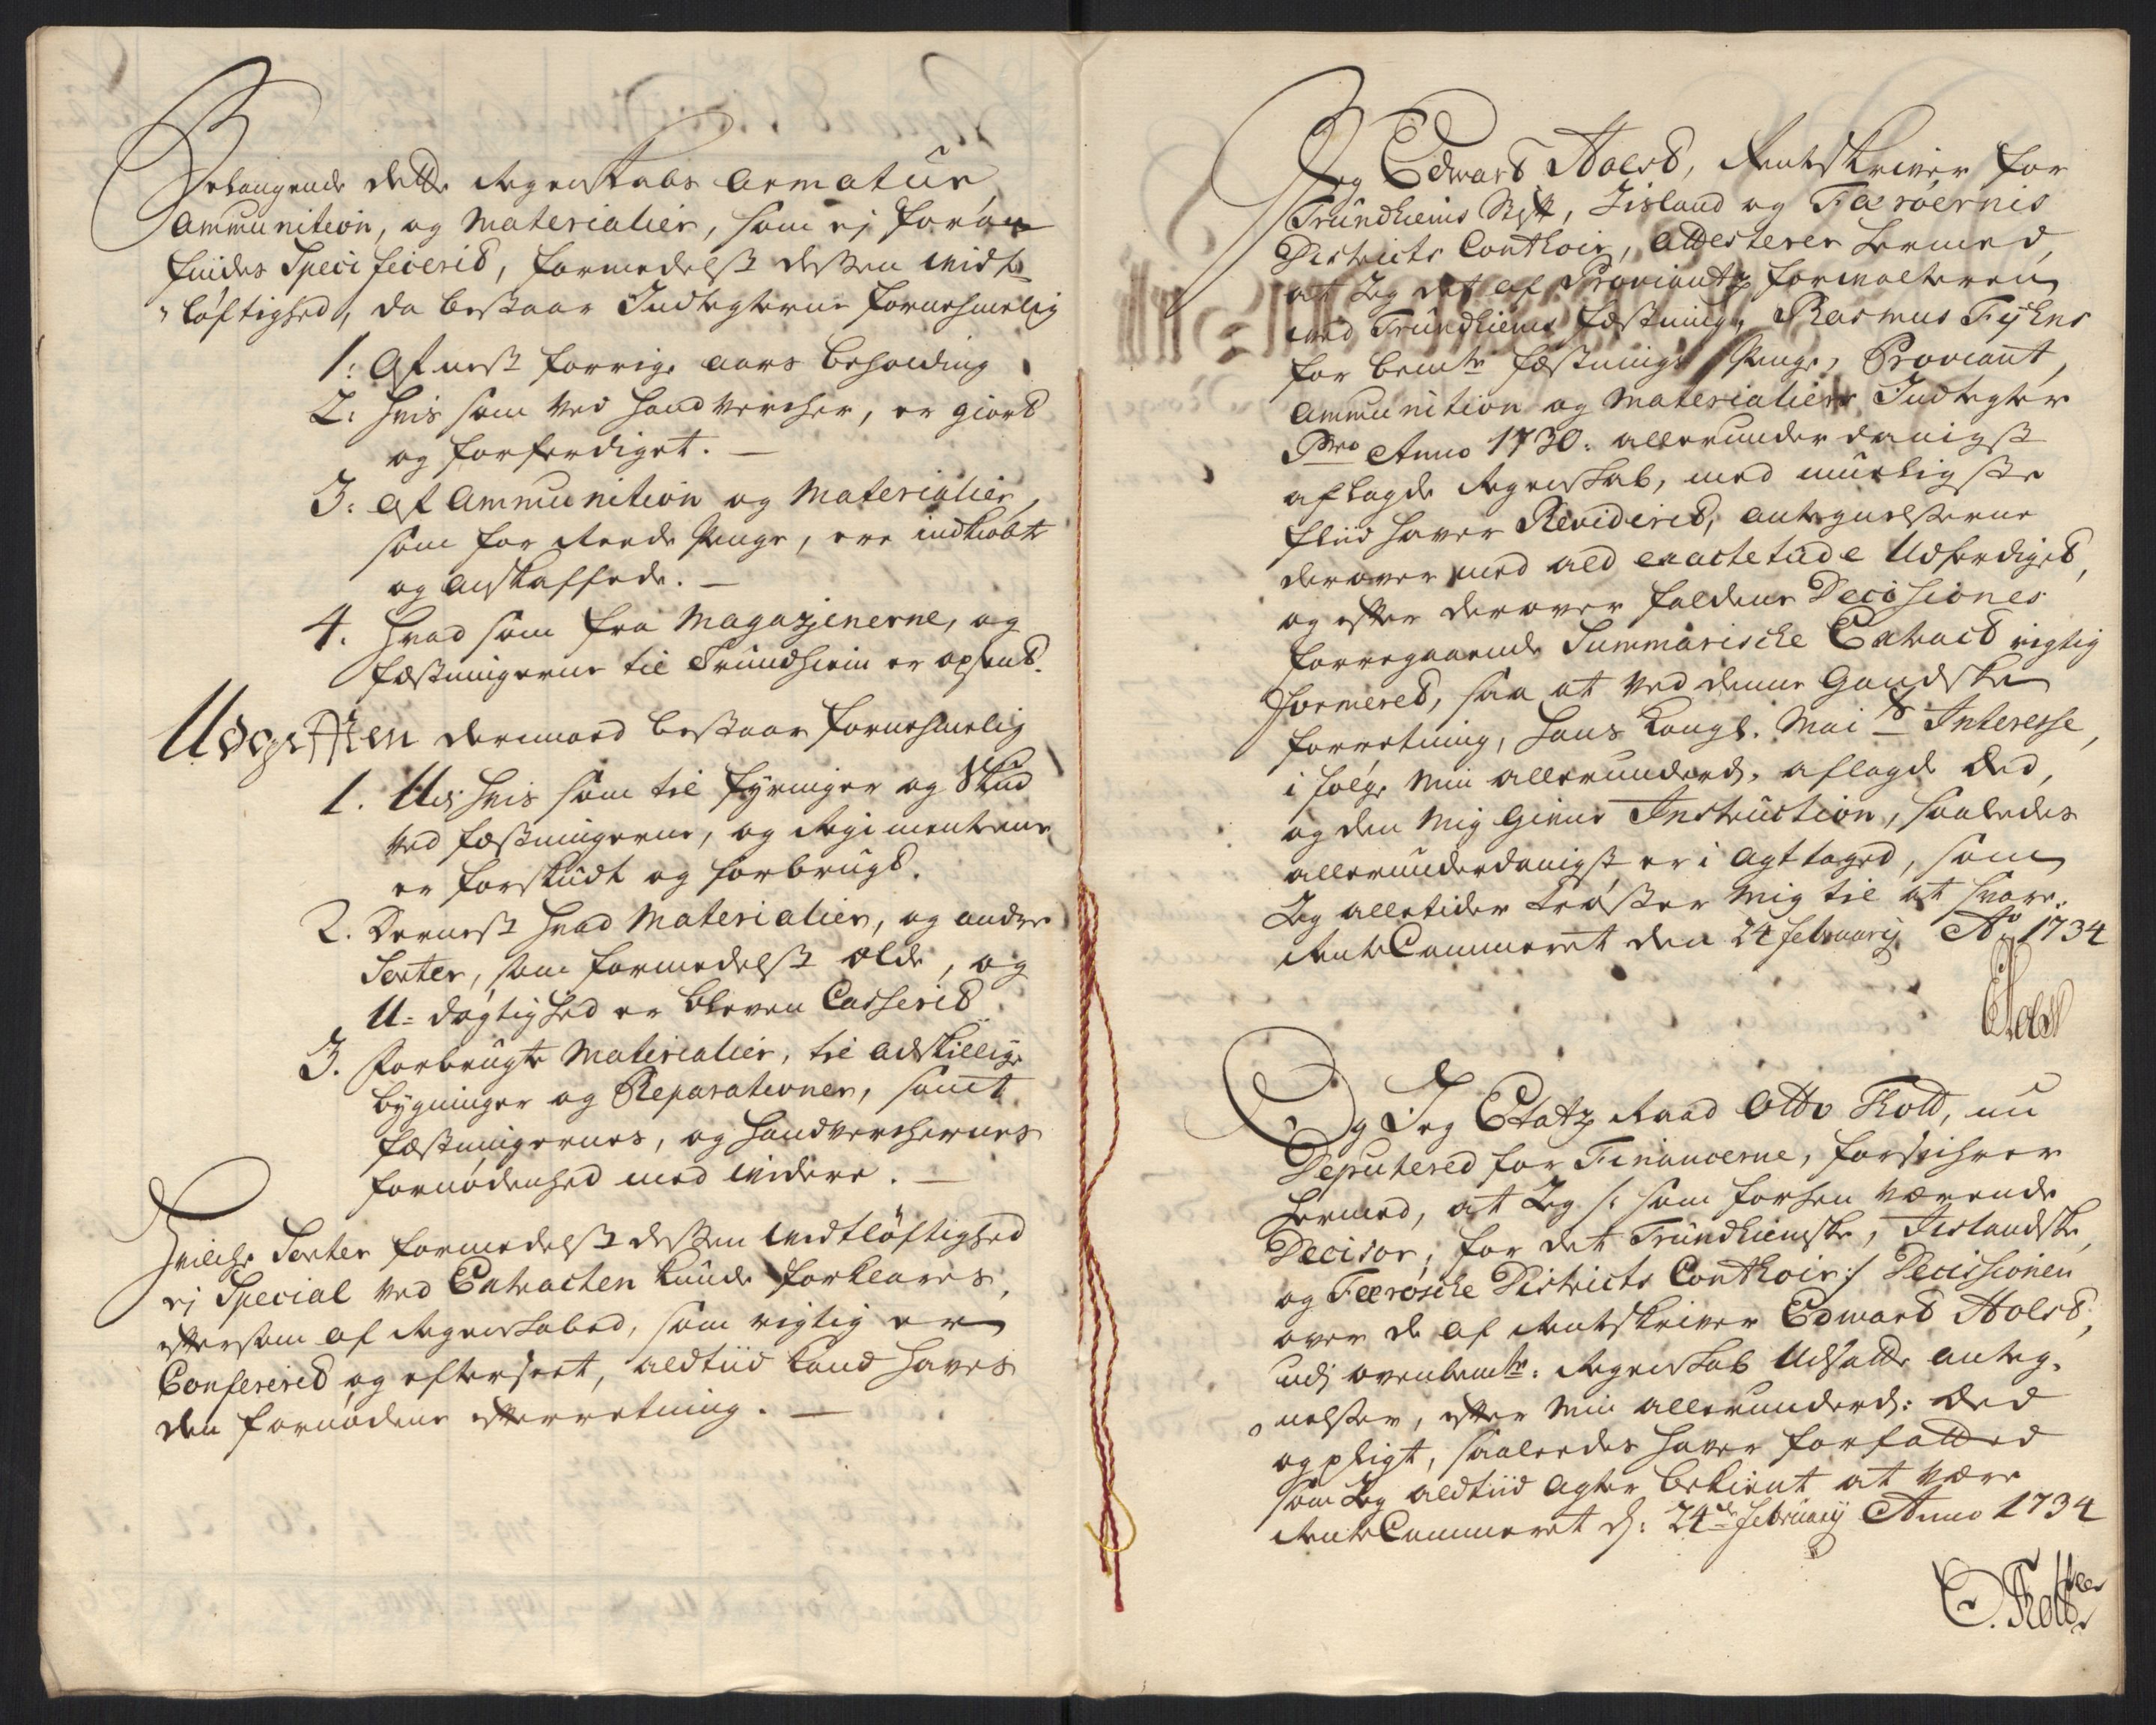 Belangende dette Regenskabs Armatur
Ammunition, og Materialier, som ej foran
findes Specificerid, formedelst dessen Widt-
løftighed, da bestaar Indtegterne fornehmelig
1: Af nest forrige aars beholding
2: Hvis som ved Handvercher, er giord
og forferdiget. —
3: Af Ammunition og Materialier,
som for Reede Penge, ere indkiøbte
og anskaffede. —
4. Hvad som fra Magazjenerne, og
Fæstningerne til Trundhiem er opsend.
Udgiften dermoed bestaar fornehmelig
1. Udj hvis som til fyringer og Skud
ved Fæstningerne, og Regimenterne
er forskudt og forbrugt.
2. Dernest hvad Materialier, og andre
Sorter, som formedelst Ælde, og
U-dygtighed er bleven Casserid
3. Forbrugte Materialier, til adskillige
bygninger og Reparationer, samt
Fæstningernes, og Handverchernes
fornødenhed med videre. —
Hvilche Sorter formedelst dessen Widtløftighed
ej Special ved Extracten kunde forklares,
eftersom af Regenskabed, som rigtig er
Confererid og efterseet, aldtiid kand haves
den fornødene efterretning. —
Jeg Edward Holst, Rentskriver for
Trundhiems Stift, Iisland og Færøernis
Districts Conthoir, Attesterer hermed,
at Jeg det af Proviantz forvalteren
ved Trundhiems Fæstning, Rasmus Fykns
for bemte Fæstnings Penge, Proviant,
Ammunition og Materialiers Indtegter
Pro Anno 1730: allerunderdanigst
aflagde Regenskab, med mueligste
fliid haver Reviderid, antegnelserne
derover med ald exactetude Udferdiged,
og efter derover faldene Decisiones
forregaaende Summarische Extract rigtig
formered, saa at ved denne Gandske
forretning, Hans Kongl. Mai ts Interesse,
i følge min allerunderd. aflagde Eed,
og den mig givne Instruction, saaledes
allerunderdanigst er i agttaged, som
Jeg alletider trøster mig til at svare.
RenteCammeret den 24 Februarij Ao 1734
EHolst
Og Jeg Etatz Raad Otto Thott, nu
Deputered for Financerne, forsichrer
hermed, at Jeg /: som forhen værende
Decisor, for det Trundhiemske, Iislandske,
og Færøsche Districts Conthoir :/ Decissionen
over de af Rentskriver Edward Holst,
udj ovenbemte: Regenskab Udsatte anteg-
nelser, efter min allerunderd: Eed
og pligt, saaledes haver forfatted
som Jeg aldtiid agter bekient at være
RenteCammeret d: 24de Februarij Anno 1734
O. Thott